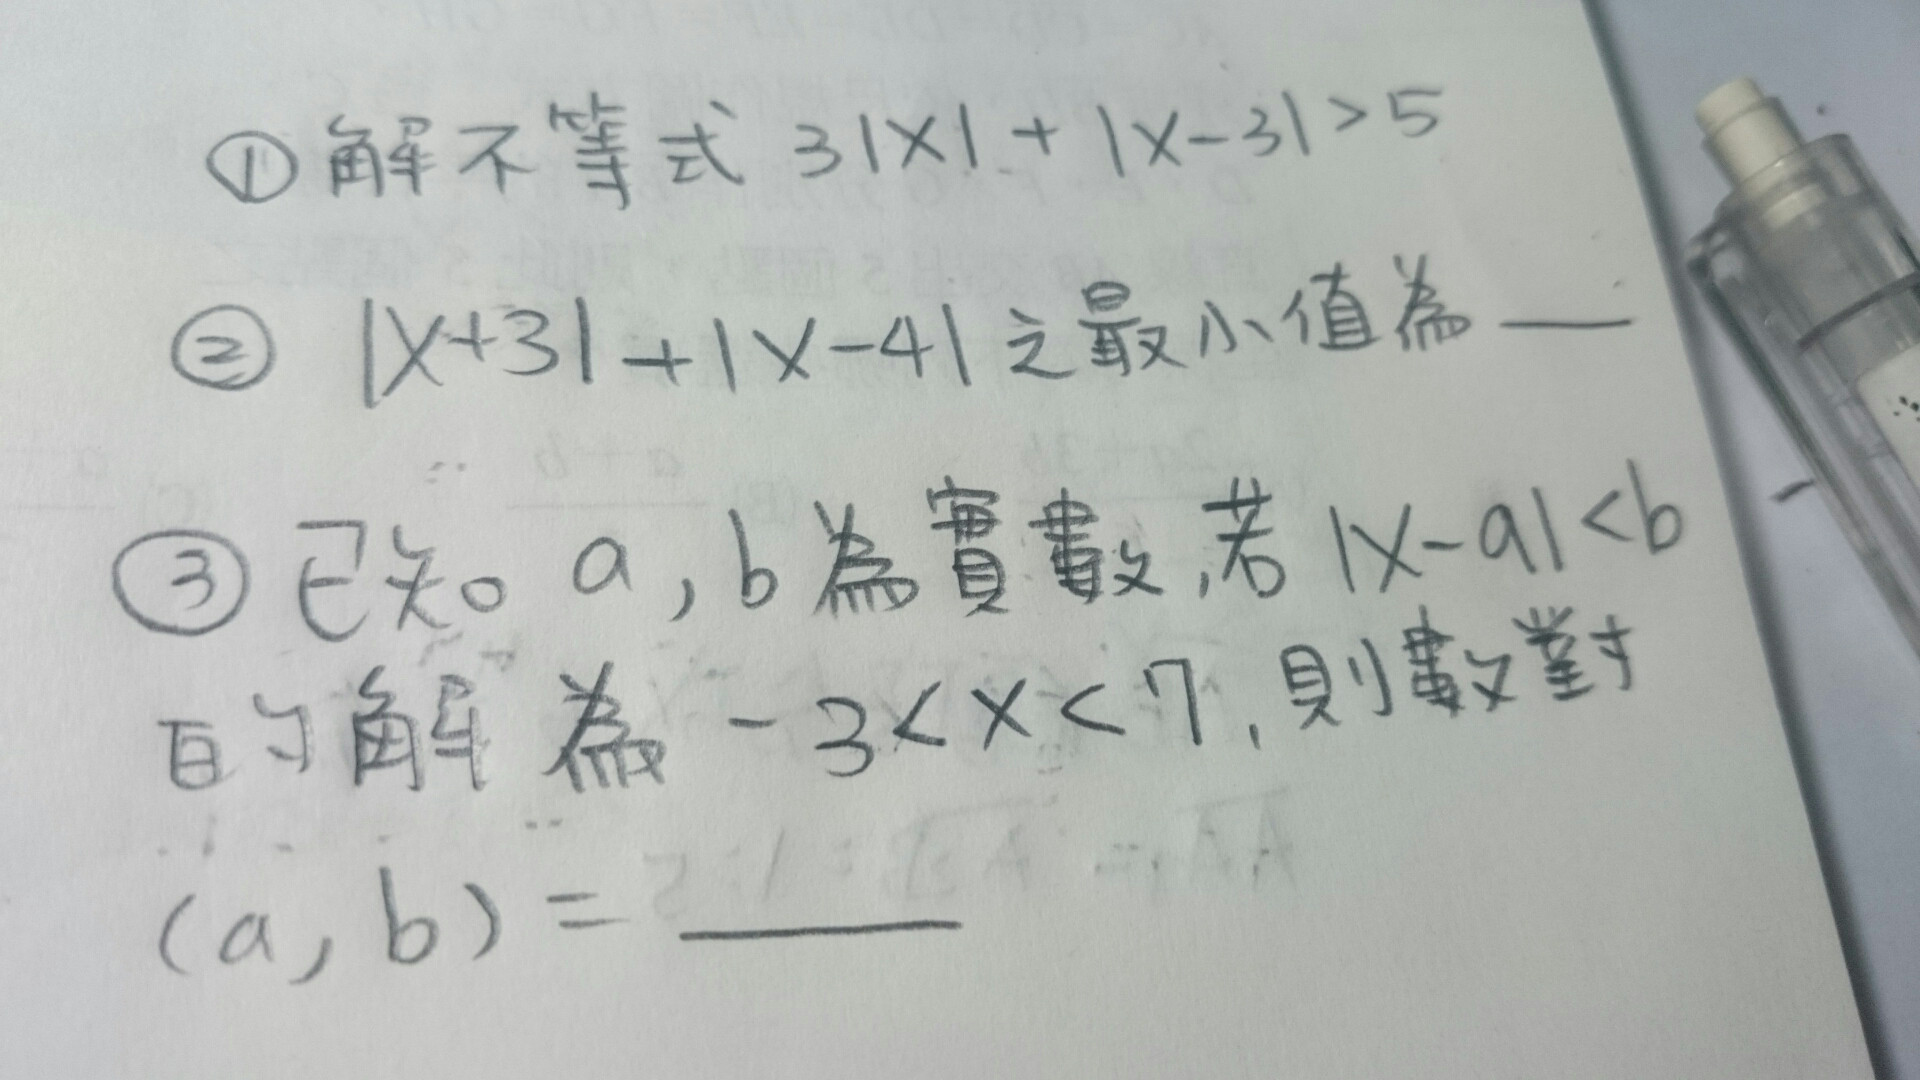 ① 解不等式 3|x| + |x-3| > 5
② |x+3| + |x-4| 之最小值為 ___
③ 已知 a, b 為實數, 若 |x-a| < b
的解為 -3 < x < 7, 則數對
(a, b) = ___